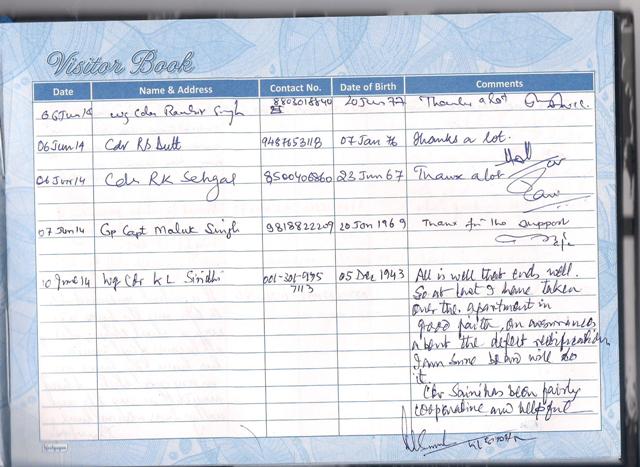 Visitor Book
Date Name & Address Contact No. Date of Birth Comments
06 Jun 14 Wg Cdr Ranbir Singh 8803018840 20 Jun 77 Thanks a lot
06 Jun 14 Cdr RS Dutt 9487653118 07 Jan 76 Thanks a lot.
06 Jun 14 Cdr RK Sehgal 8500406860 23 Jun 67 Thanx a lot
07 Jun 14 Gp Capt Maluk Singh 9818822209 20 Jan 1969 Thanx for the support
10 June 14 Wg Cdr K L 001-301-975 05 Dec 1943 All is well that ends well.
7113 So at last I have taken
over the apartment in
good faith, on assurances
about the defect rectification
I am sure board will do
it.
Cdr Saini has been fairly
cooperative and helpful